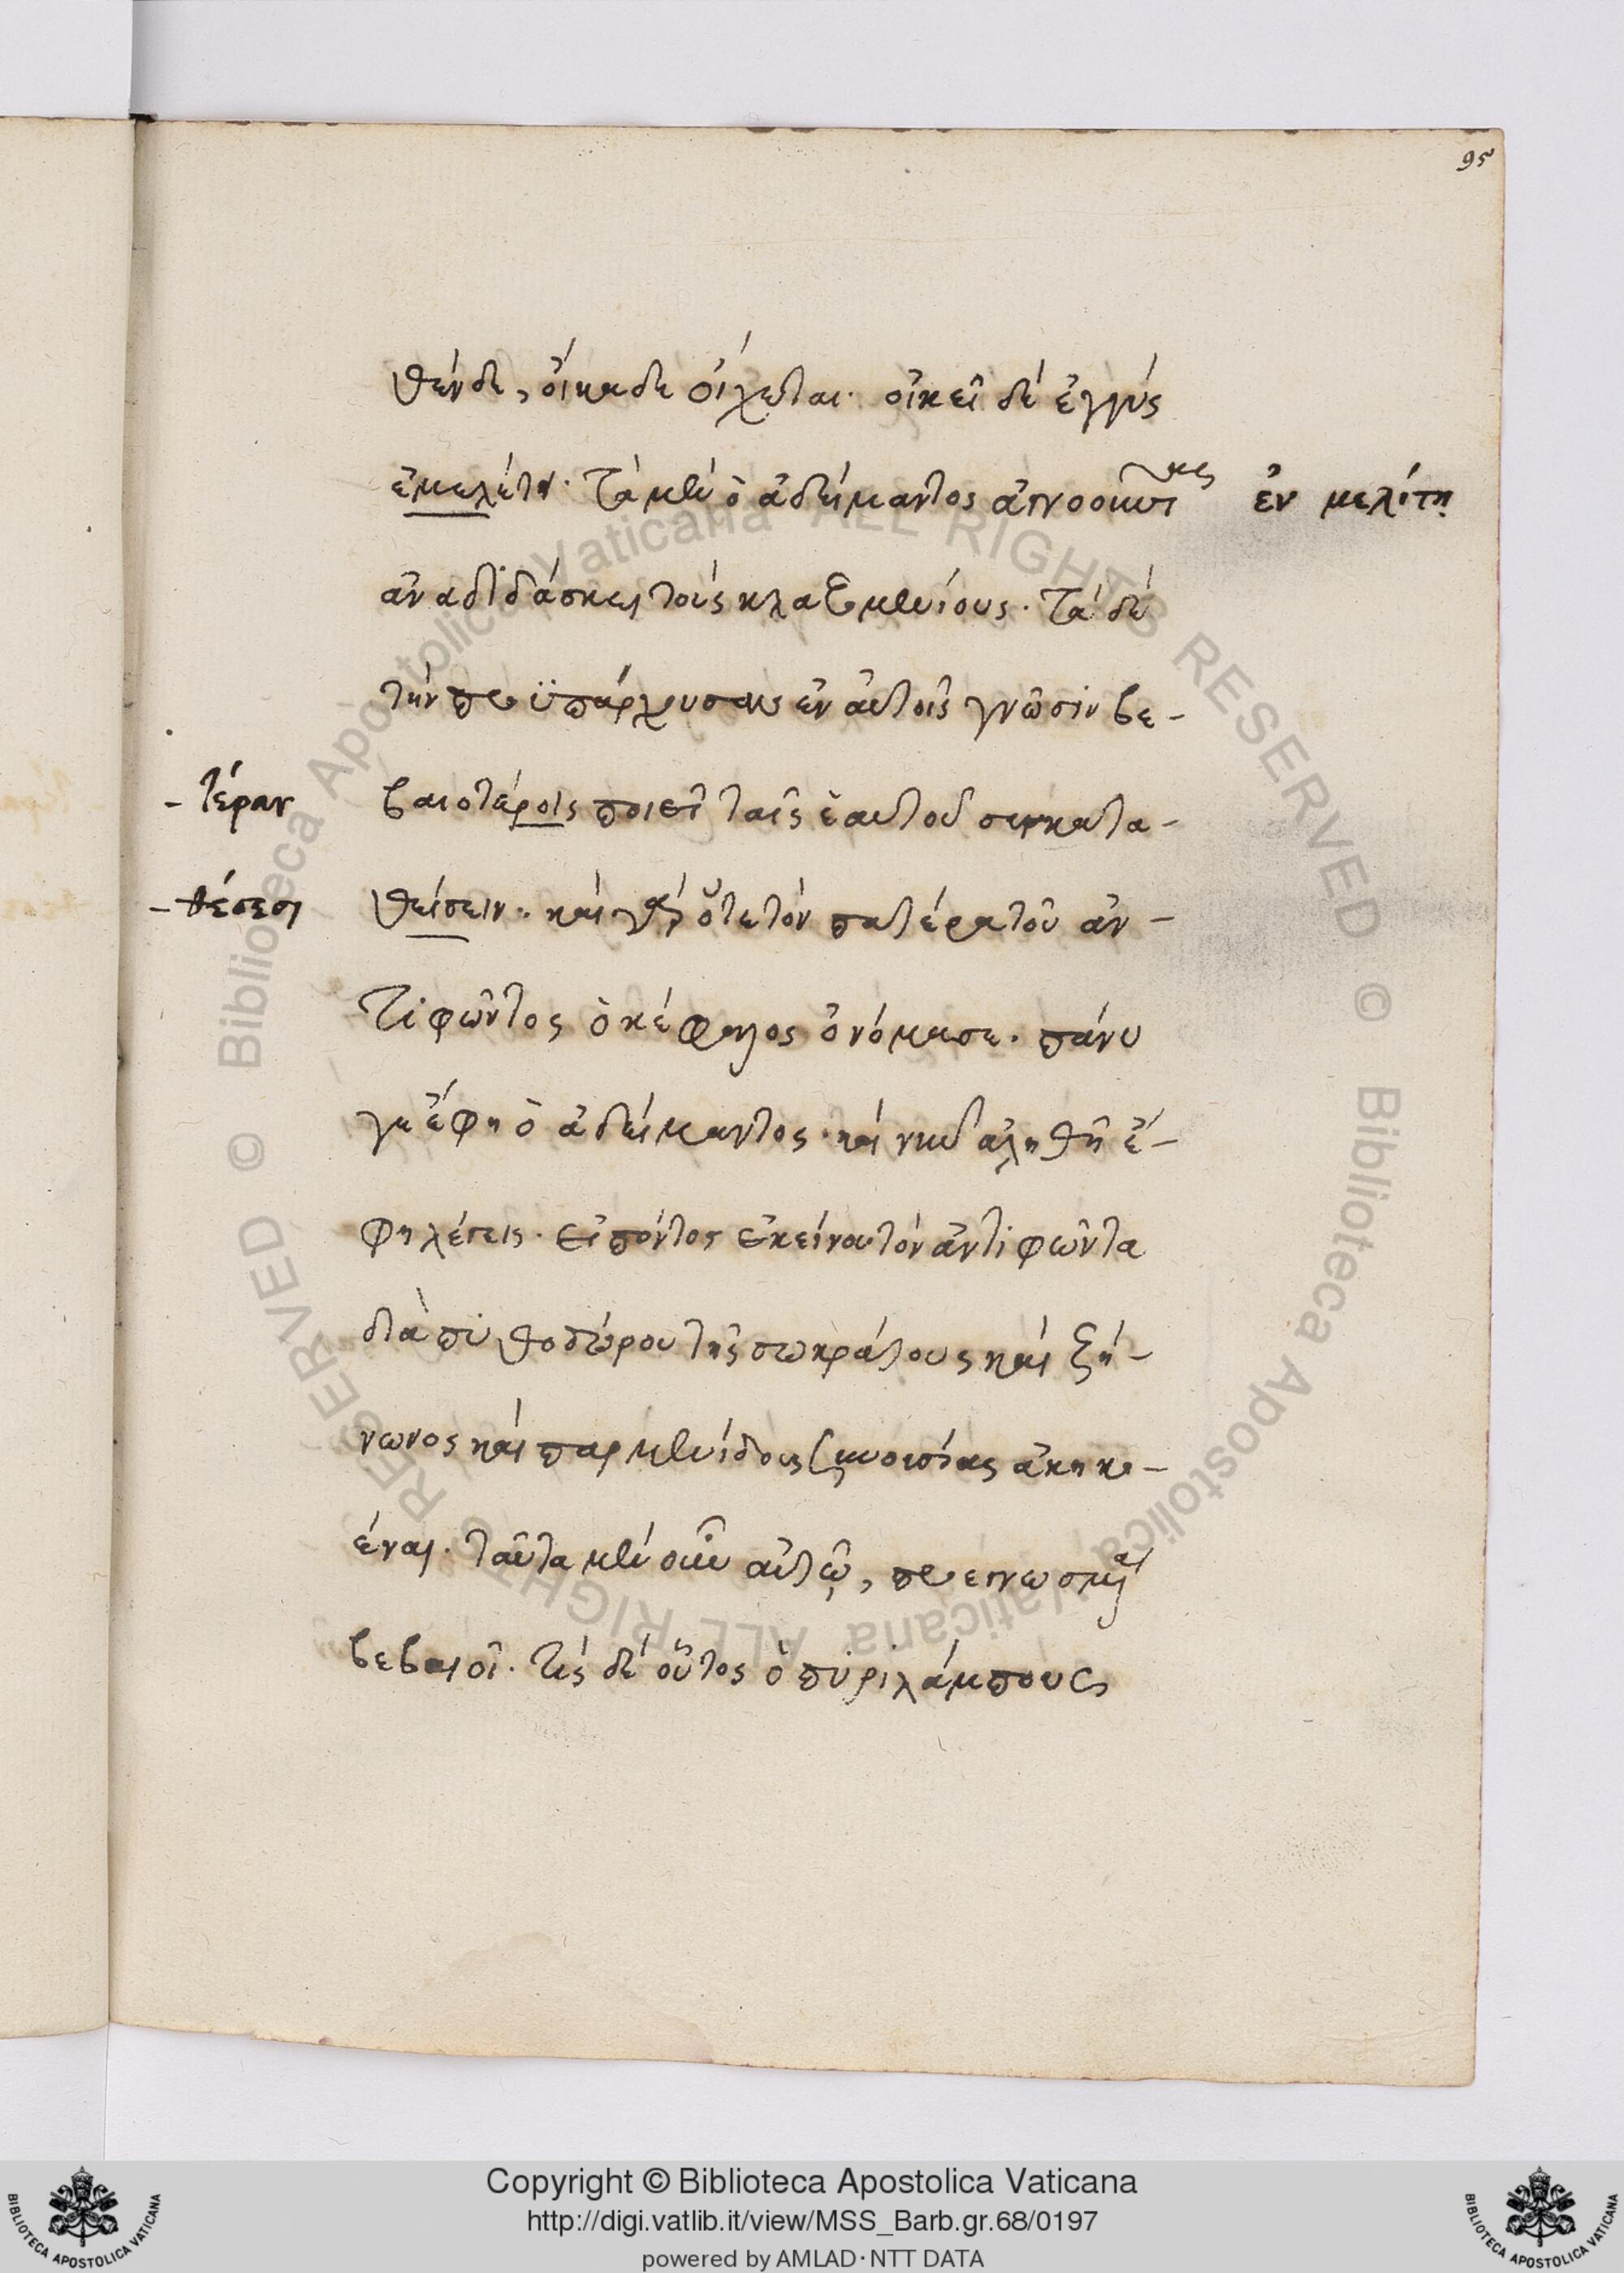 95
θένδε, οἴκαδε οἴχεται· οἰκεῖ δὲ ἐγγύς
ἐμελέτη· Τὰ μὲν ὁ ἀδείμαντος ἀγνοοῦντας
ἐν μελίτῃ
ἀναδιδάσκει τοὺς κλαζομενίους· Τὰ δὲ
τὴν προϋπάρχουσαν ἐν αὐτοῖς γνῶσιν βε-
- τέραν
βαιοτέροις ποιεῖ ταῖς ἑαυτοῦ συγκατα-
- θέσεσι
θείσειν· καὶ γὰρ ὅτε τὸν πατέρα τοῦ ἀν-
τιφῶντος ὁ κέφαλος ὀνόμασε· πάνυ
γε ἔφη ὁ ἀδείμαντος· καὶ νῦν ἀληθῆ ἔ-
φη λέγεις· εἰπόντος ἐκείνου τὸν ἀντιφῶντα
διὰ πυθοδώρου τῆς σωκράτους καὶ ζή-
νωνος καὶ παρμενίδους ξυνουσίας ἀκηκο-
έναι· ταῦτα μὲν οὖν αὐτῷ, προεγνωσμένα
βεβαιοῖ· τίς δὲ οὗτος ὁ πυριλάμπους
Copyright © Biblioteca Apostolica Vaticana
http://digi.vatlib.it/view/MSS_Barb.gr.68/0197
powered by AMLAD·NTT DATA
BIBLIOTECA APOSTOLICA VATICANA
BIBLIOTECA APOSTOLICA VATICANA
© Biblioteca Apostolica Vaticana ALL RIGHTS RESERVED
© Biblioteca Apostolica Vaticana ALL RIGHTS RESERVED